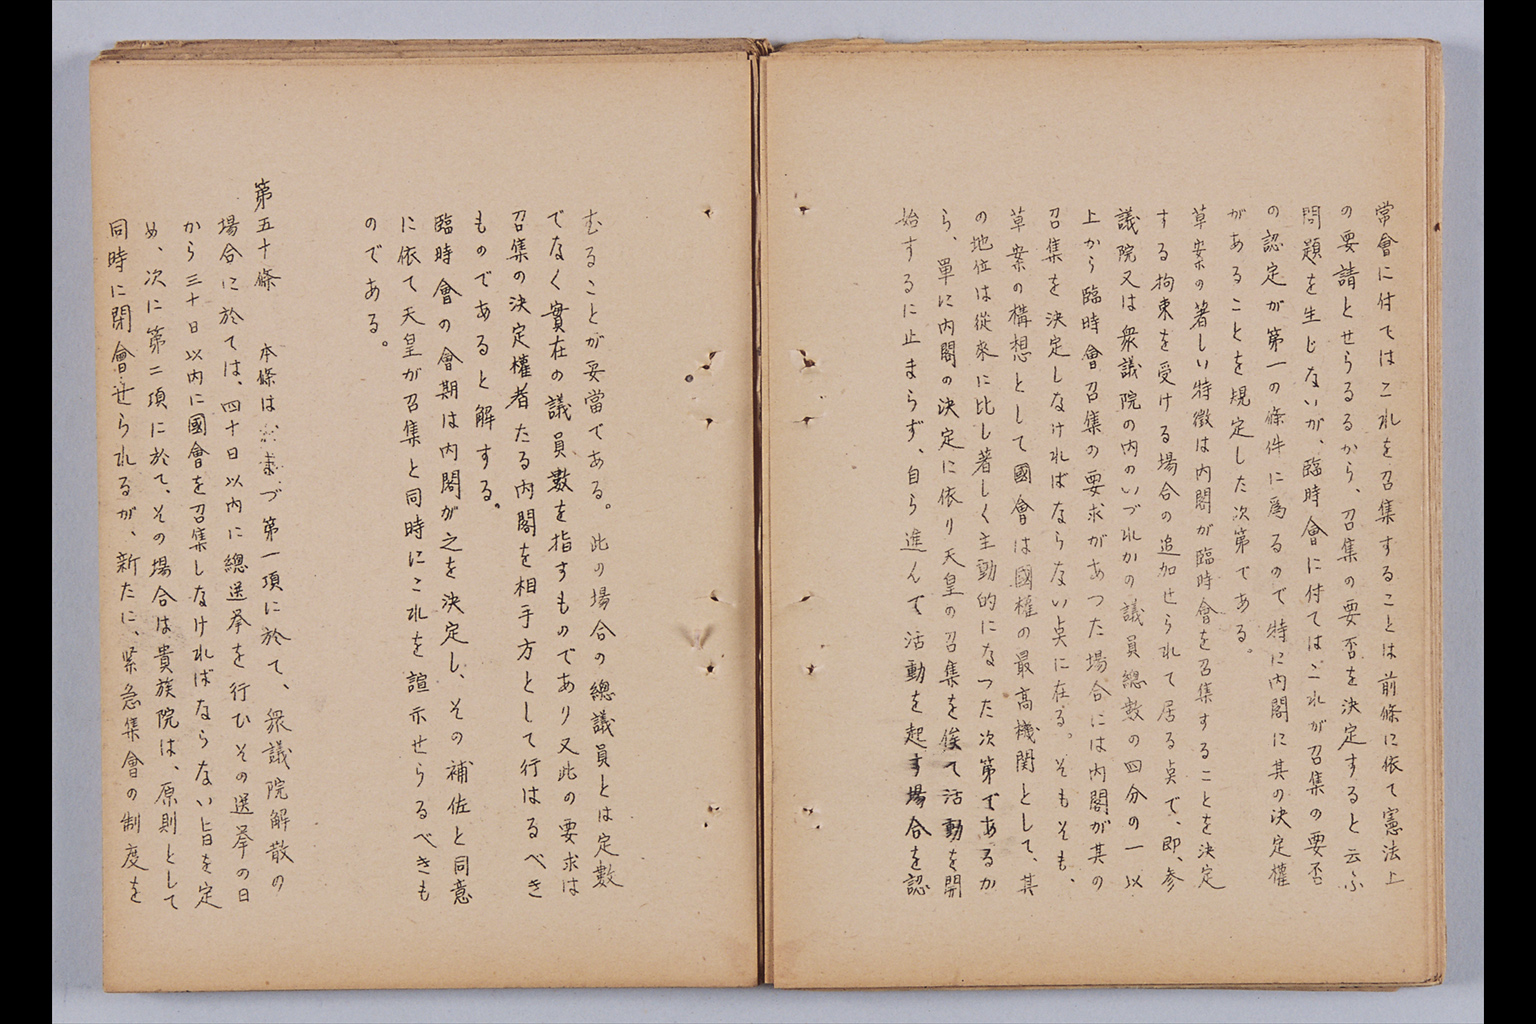 常會に付てはこれを召集することは前條に依て憲法上
の要請とせらるるから、召集の要否を決定すると云ふ
問題を生じないが、臨時會に付てはこれが召集の要否
の認定が第一の條件に爲るので特に内閣に其の決定權
があることを規定した次第である。
草案の著しい特徴は内閣が臨時會を召集することを決定
する拘束を受ける場合の追加せられて居る点で、即、参
議院又は衆議院の内のいづれかの議員總數の四分の一以
上から臨時會召集の要求があつた場合には内閣が其の
召集を決定しなければならない点に在る。そもそも、
草案の構想として國會は國權の最高機関として、其
の地位は從來に比し著しく主動的になつた次第であるか
ら、單に内閣の決定に依り天皇の召集を俟て活動を開
始するに止まらず、自ら進んで活動を起す場合を認
むることが妥當である。此の場合の總議員とは定數
でなく實在の議員數を指すものであり又此の要求は
召集の決定權者たる内閣を相手方として行はるべき
ものであると解する。
臨時會の會期は内閣が之を決定し、その補佐と同意
に依て天皇が召集と同時にこれを諠示せらるべきも
のである。
第五十條　本條はまづ第一項に於て、衆議院解散の
場合に於ては、四十日以内に總選挙を行ひその選挙の日
から三十日以内に國會を召集しなければならない旨を定
め、次に第二項に於て、その場合は貴族院は、原則として
同時に閉會せられるが、新たに、緊急集會の制度を